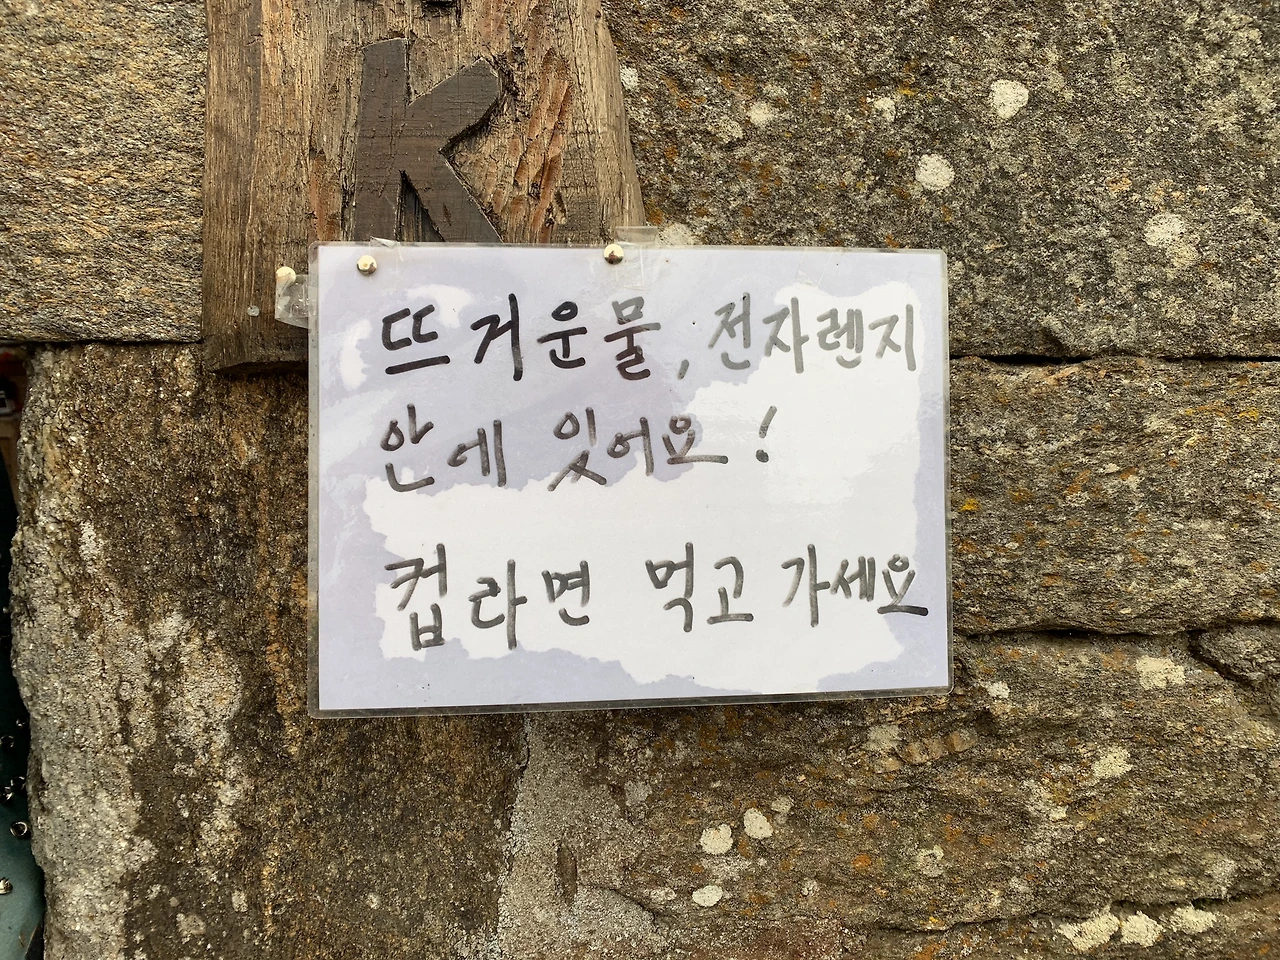 K
뜨거운물, 전자렌지
안에 잇어요!
컵라면 먹고 가세요